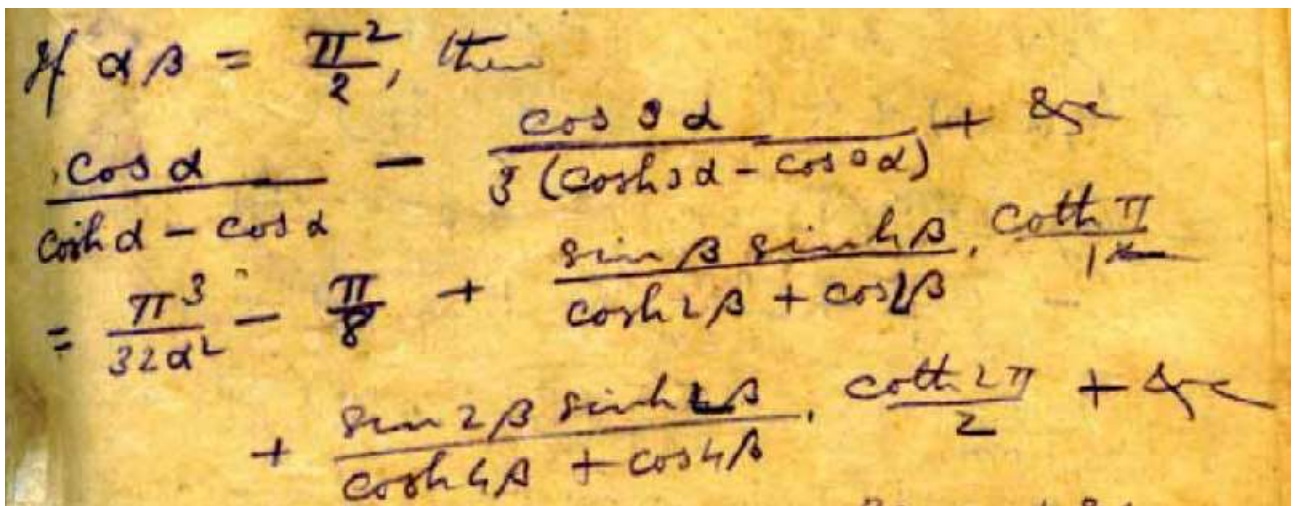 If αβ = π²/2, then
cos α/(cosh α − cos α) − cos 3α/(3(cosh 3α − cos 3α)) + &c
= π³/(32α²) − π/8 + (sin β sinh β)/(cosh 2β + cos 2β) · coth π/1
+ (sin 2β sinh 2β)/(cosh 4β + cos 4β) · coth 2π/2 + &c